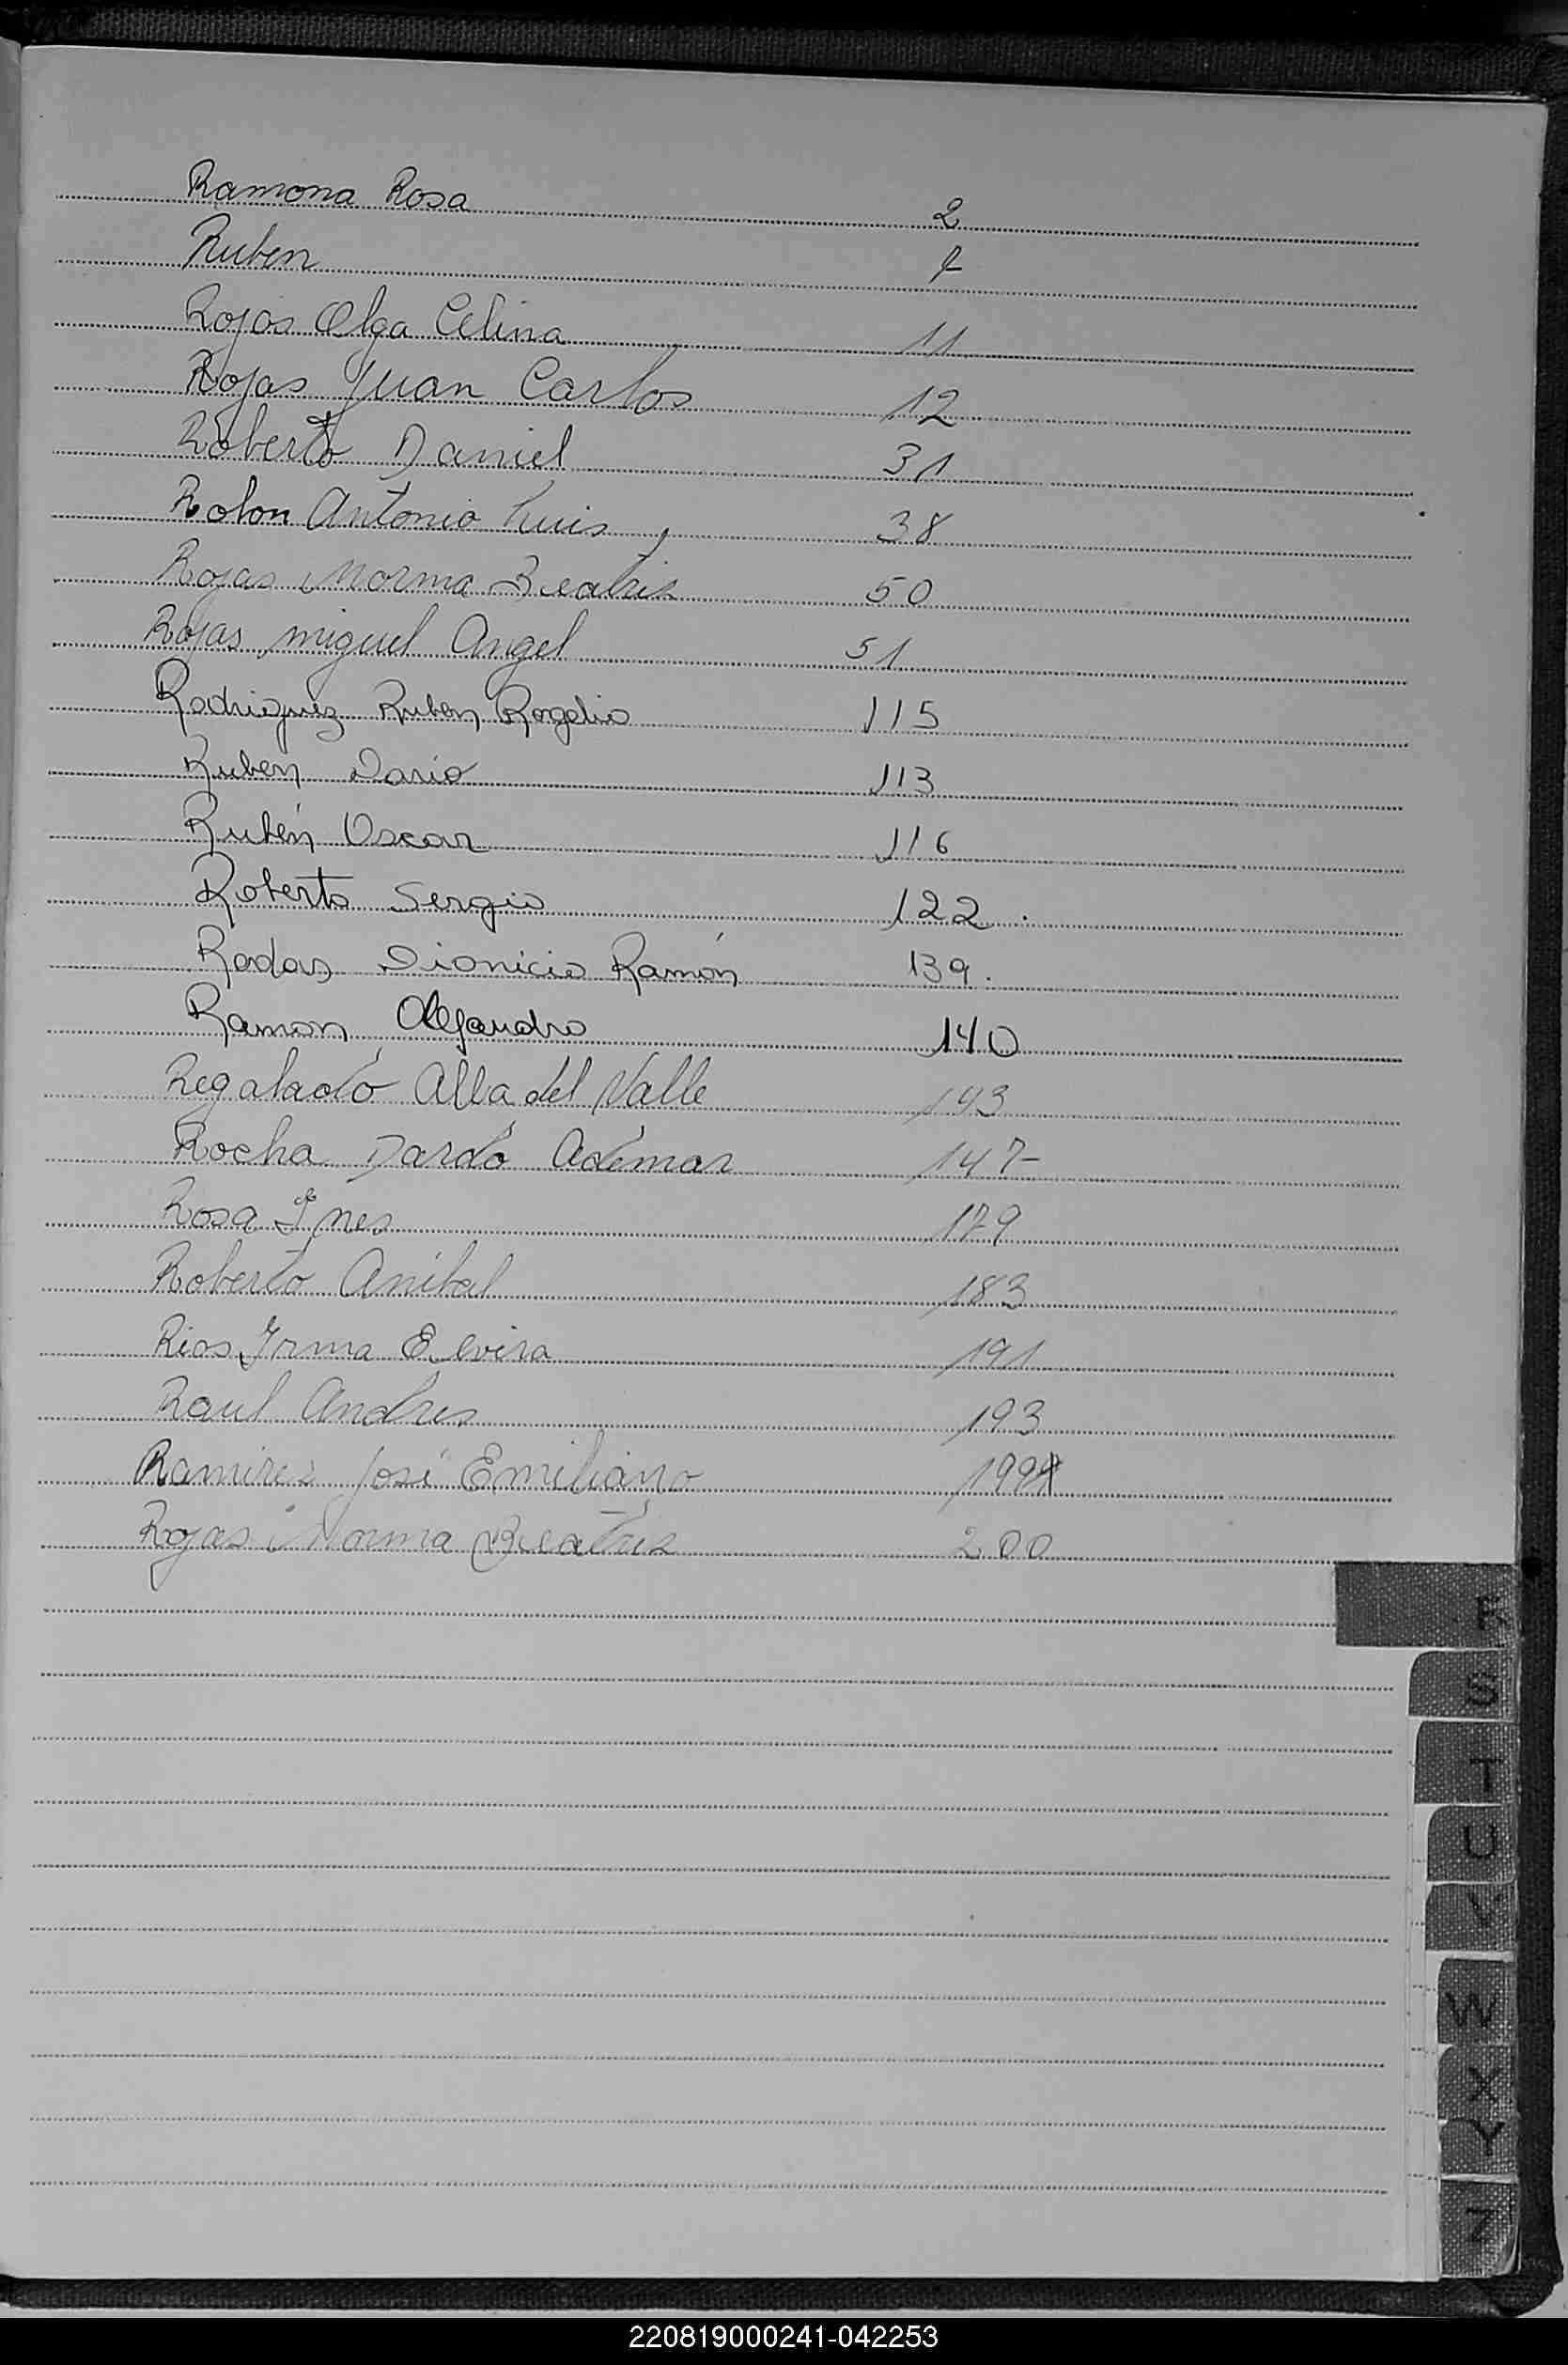 Ramona Rosa 2
Ruben 7
Rojas Olga Celina 11
Rojas Juan Carlos 12
Roberto Daniel 31
Rolon Antonio Luis 38
Rojas Norma Beatris 50
Rojas Miguel Angel 51
Rodriguez Ruben Rogelio 115
Ruben Dario 113
Rubén Oscar 116
Roberto Sergio 122.
Rodas Dionicio Ramón 139.
Ramon Alejandro 140
Regalado Alba del Valle 143
Rocha Dardo Ademar 147
Rosa Ines 179
Roberto Anibal 183
Rios Irma Elvira 191
Raul Andres 193
Ramires José Emiliano 199
Rojas Norma Beatris 200
R
S
T
U
V
W
X
Y
Z
220819000241-042253